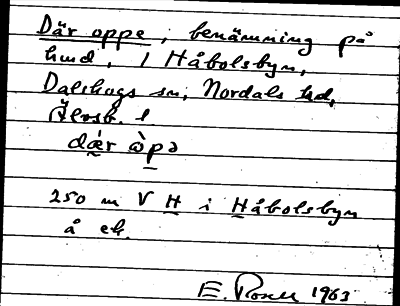 Där oppe, benämning på
hmd, 1 Håbolsbyn,
Dalskogs sn, Nordals hd,
Älvsb. l
dǽr ɷ̀pə
250 m V H i Håbolsbyn
å ek.
E. Rosell 1963